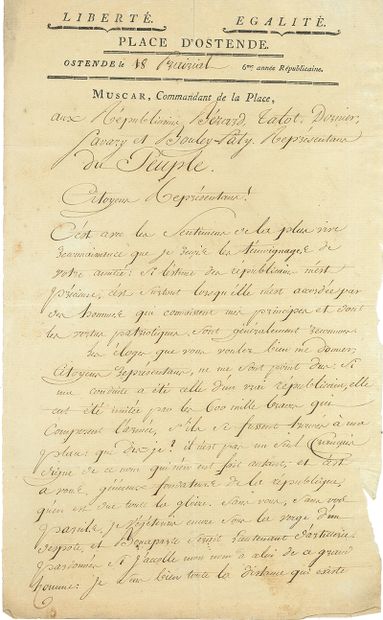 LIBERTÉ. EGALITÉ.
PLACE D'OSTENDE.
OSTENDE le 18 Prairial 6me année Républicaine.
MUSCAR, Commandant de la Place,
aux Républicains Bérard, Talot, Dornier,
Savary et Bouley-Paty, Représentans
du Peuple.
Citoyens Représentans!
C'est avec les Sentimens de la plus vive
reconnaissance que je reçois les témoignages de
votre amitié: Si l'estime des républicains m'est
précieuse, c'est surtout lorsqu'elle m'est accordée par
des hommes qui connaissent mes principes et dont
les vertus patriotiques sont généralement reconnues
les éloges que vous voulez bien me donner,
Citoyens représentans, ne me sont point dus. Si
ma conduite a été celle d'un vrai républicain, elle
eut été imitée par les 600 mille braves qui
composent l'armée, s'ils se fussent trouvés à ma
place: que dis-je? il n'est pas un seul Français
digne de ce nom qui n'en eut fait autant; et c'est
a vous, généreux fondateurs de la république,
qu'en est due toute la gloire. Sans vous, sans vos
pareils, je végéterais encore sous la verge d'un
despote, et Bonaparte serait lieutenant d'artillerie.
pardonnez si j'accolle mon nom a celui de ce grand
homme: je sens bien toute la distance qui existe